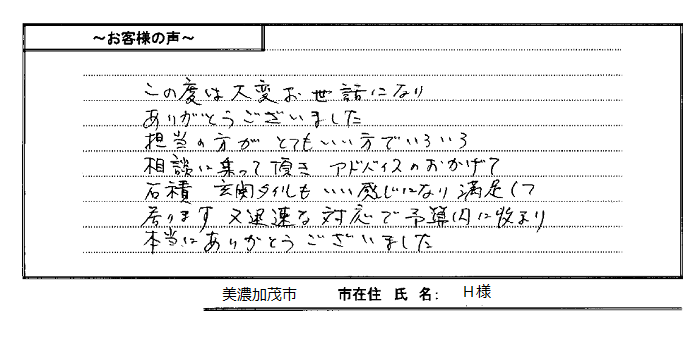 ～お客様の声～
この度は大変お世話になり
ありがとうございました
担当の方がとてもいい方でいろいろ
相談に乗って頂き アドバイスのおかげで
石積 玄関タイルもいい感じになり満足して
居ります 又迅速な対応で予算内に収まり
本当にありがとうございました
美濃加茂市 市在住 氏 名： H様